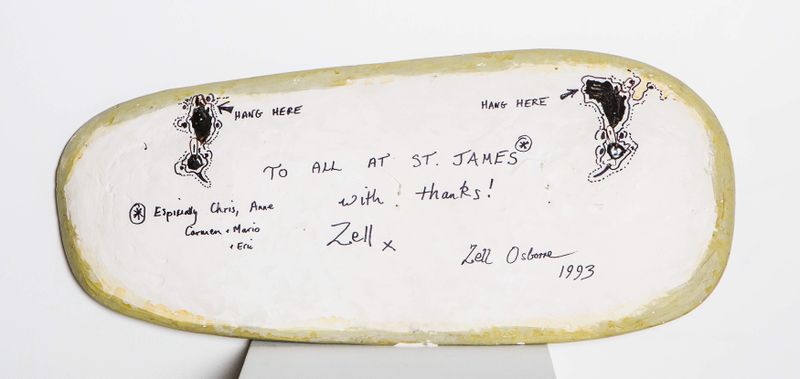 HANG HERE
HANG HERE
TO ALL AT ST. JAMES *
with thanks!
Zell x
* Espicially Chris, Anne
Carmen + Mario
+ Eric
Zell Osborne
1993